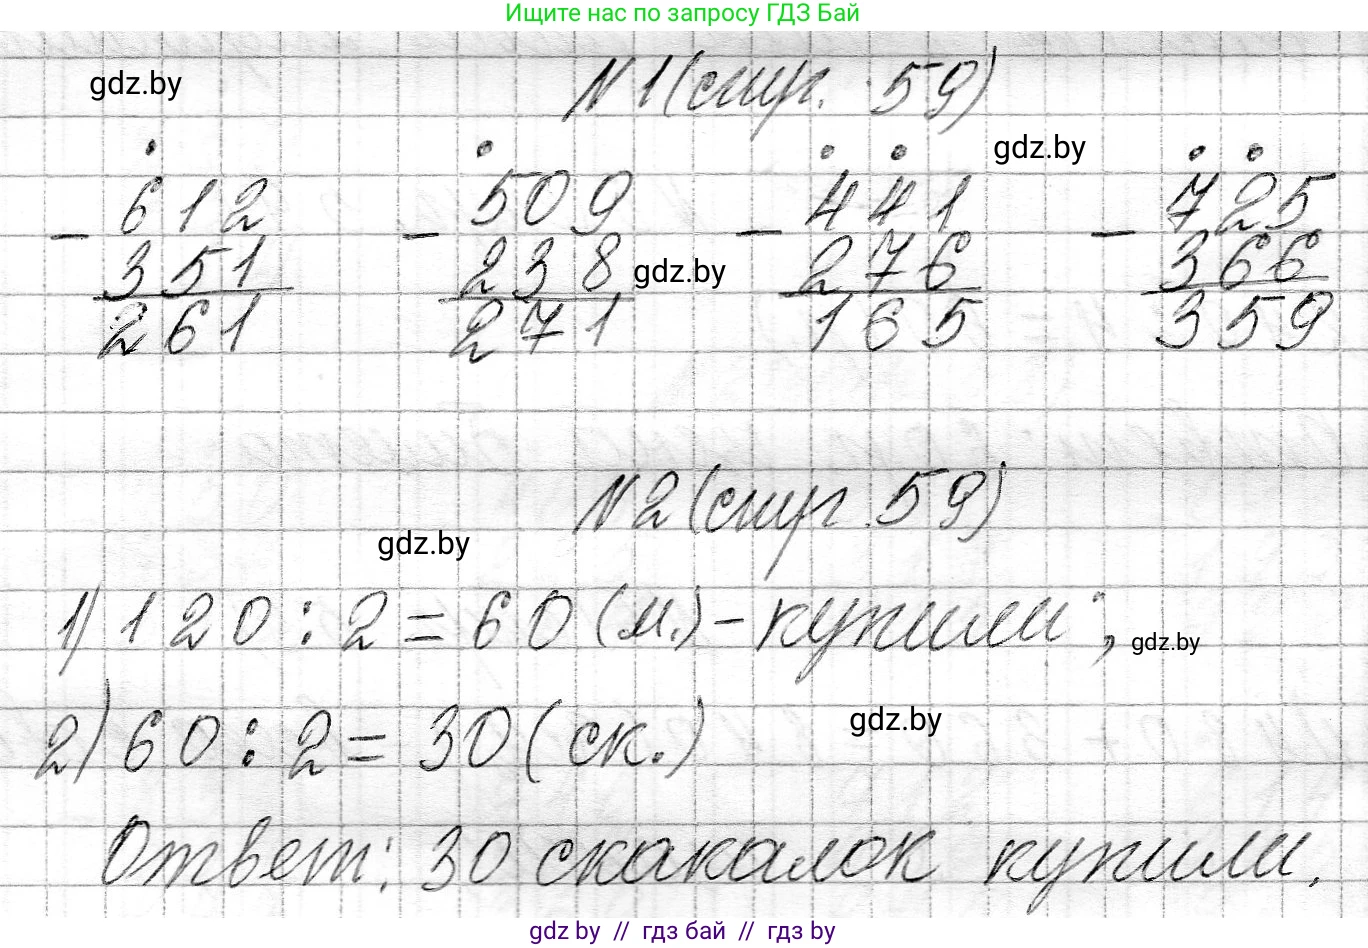 Ищите нас по запросу ГДЗ Бай
gdz.by
№1 (стр. 59)
gdz.by
612 509 441 725
- - - -
351 238 276 366
gdz.by
261 271 165 359
№2 (стр. 59)
gdz.by
1) 120 : 2 = 60 (м.) - купили;
gdz.by
2) 60 : 2 = 30 (ск.)
gdz.by
Ответ: 30 скакалок купили.
gdz.by // гдз бай // гдз by